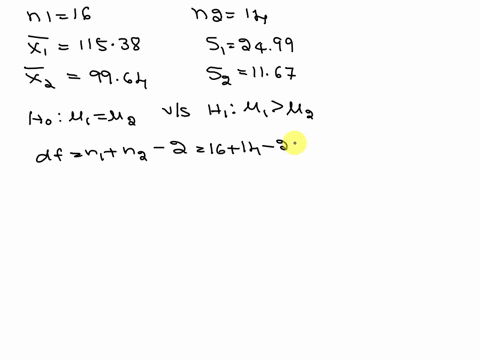 n1=16 n2=14
x̄1 = 115.38 S1=24.99
x̄2 = 99.64 S2=11.67
H0: μ1=μ2 v/s H1: μ1>μ2
df=n1+n2-2=16+14-2